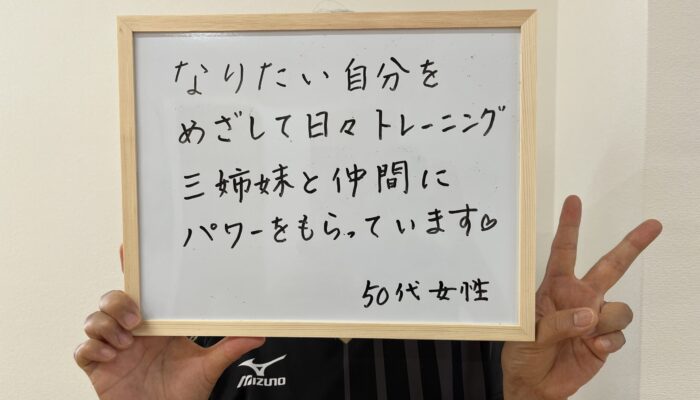 なりたい自分を
めざして日々トレーニング
三姉妹と仲間に
パワーをもらっています♡
50代女性
MIZUNO